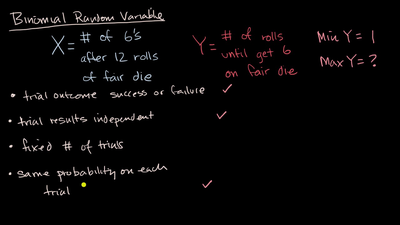 Binomial Random Variable
X = # of 6's
after 12 rolls
of fair die
Y = # of rolls
until get 6
on fair die
Min Y = 1
Max Y = ?
• trial outcome success or failure ✓
• trial results independent ✓
• fixed # of trials
• same probability on each
trial ✓